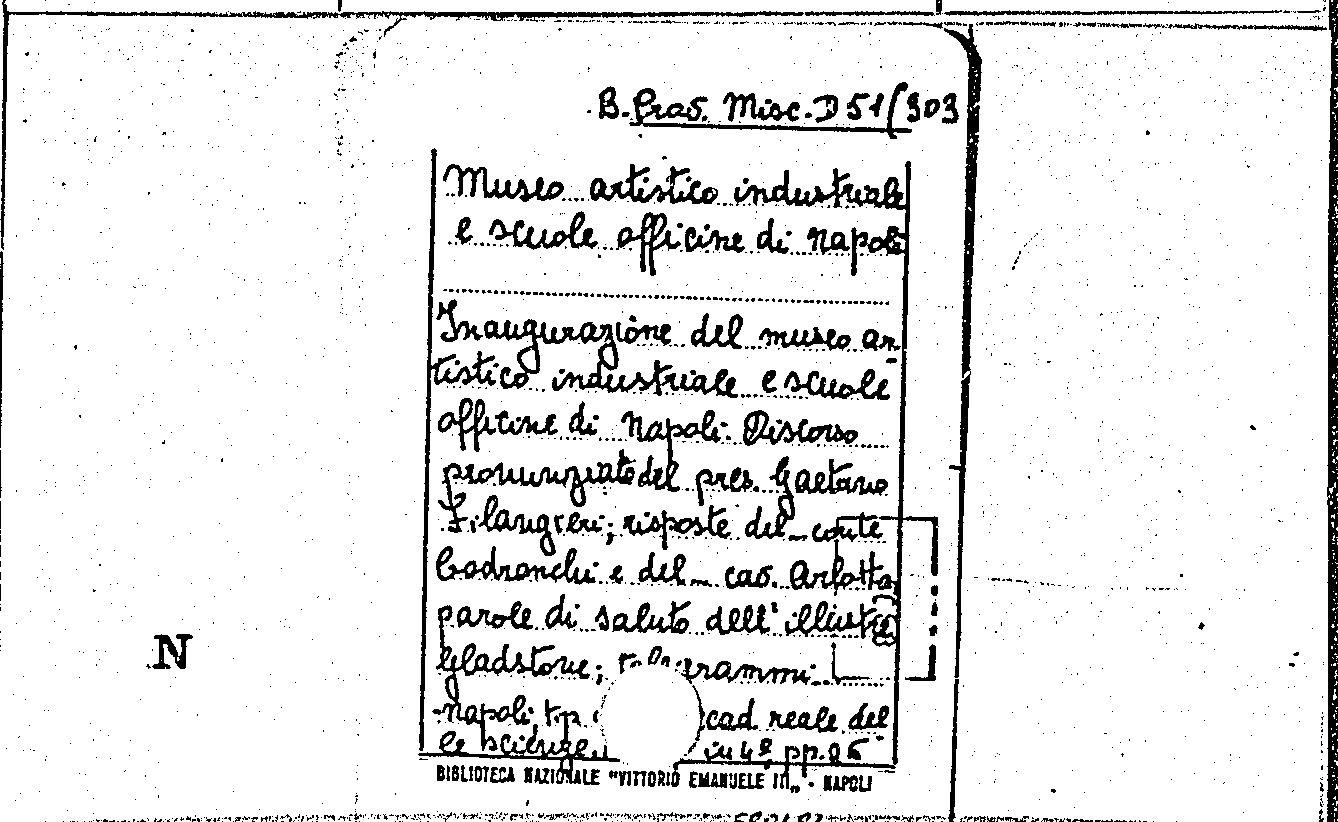 B. Bras. Misc. D 51/303
Museo artistico industriale
e scuole officine di Napoli
Inaugurazione del museo ar-
tistico industriale e scuole
officine di Napoli. Discorso
pronunziato del pres. Gaetano
Filangieri; risposte del conte
Codronchi e del cav. Arlotta
parole di saluto dell' illustre
Gladstone;
Napoli, tip cad. reale del
le scienze. in 4º pp. 26
BIBLIOTECA NAZIONALE "VITTORIO EMANUELE III„ - NAPOLI
N